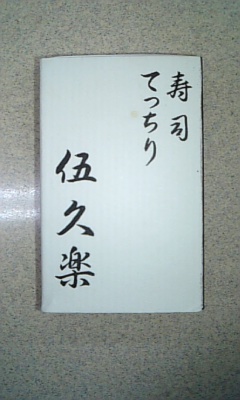 寿司
てっちり
伍久楽